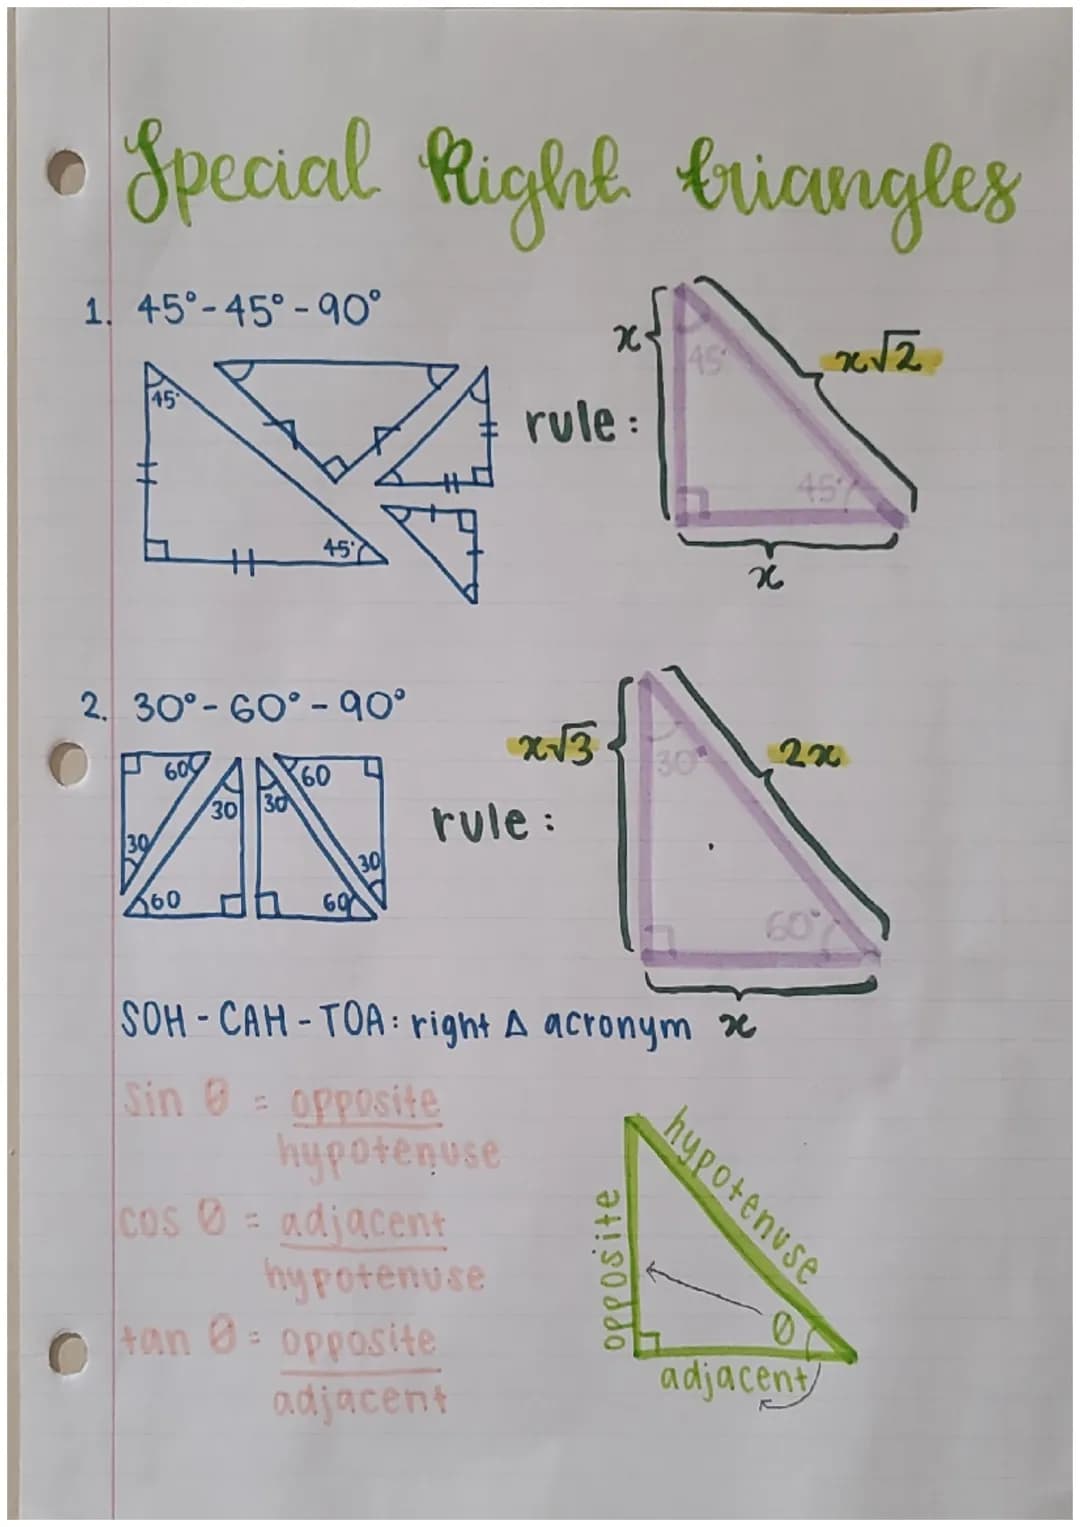 Special Right triangles
1. 45°-45°-90°
45°
45°
rule:
x
x√2
45°
45°
x
2. 30°-60°-90°
60
30
60
30
30
60
60
30
rule:
x√3
2x
30°
60°
x
SOH-CAH-TOA: right Δ acronym
sin θ = opposite
hypotenuse
cos θ = adjacent
hypotenuse
tan θ = opposite
adjacent
hypotenuse
opposite
θ
adjacent